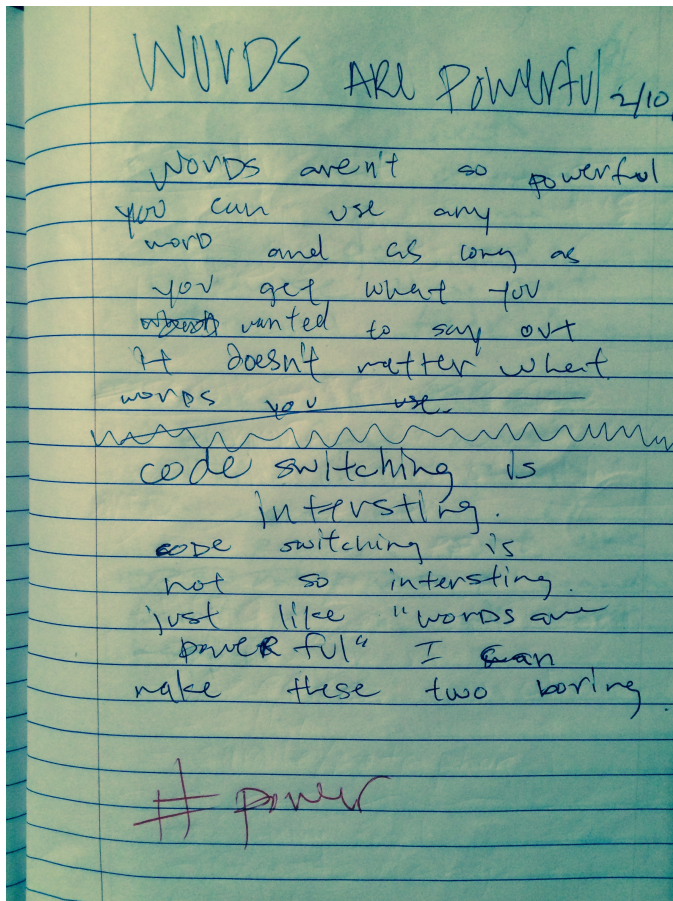 WORDS ARE Powerful 2/10
WORDS aren't so powerful
you can use any
word and as long as
you get what you
wanted to say out
It doesn't matter what
words you use
code switching is
intersting.
CODE switching is
not so intersting.
just like "words are
powerful" I can
make these two boring.
# power